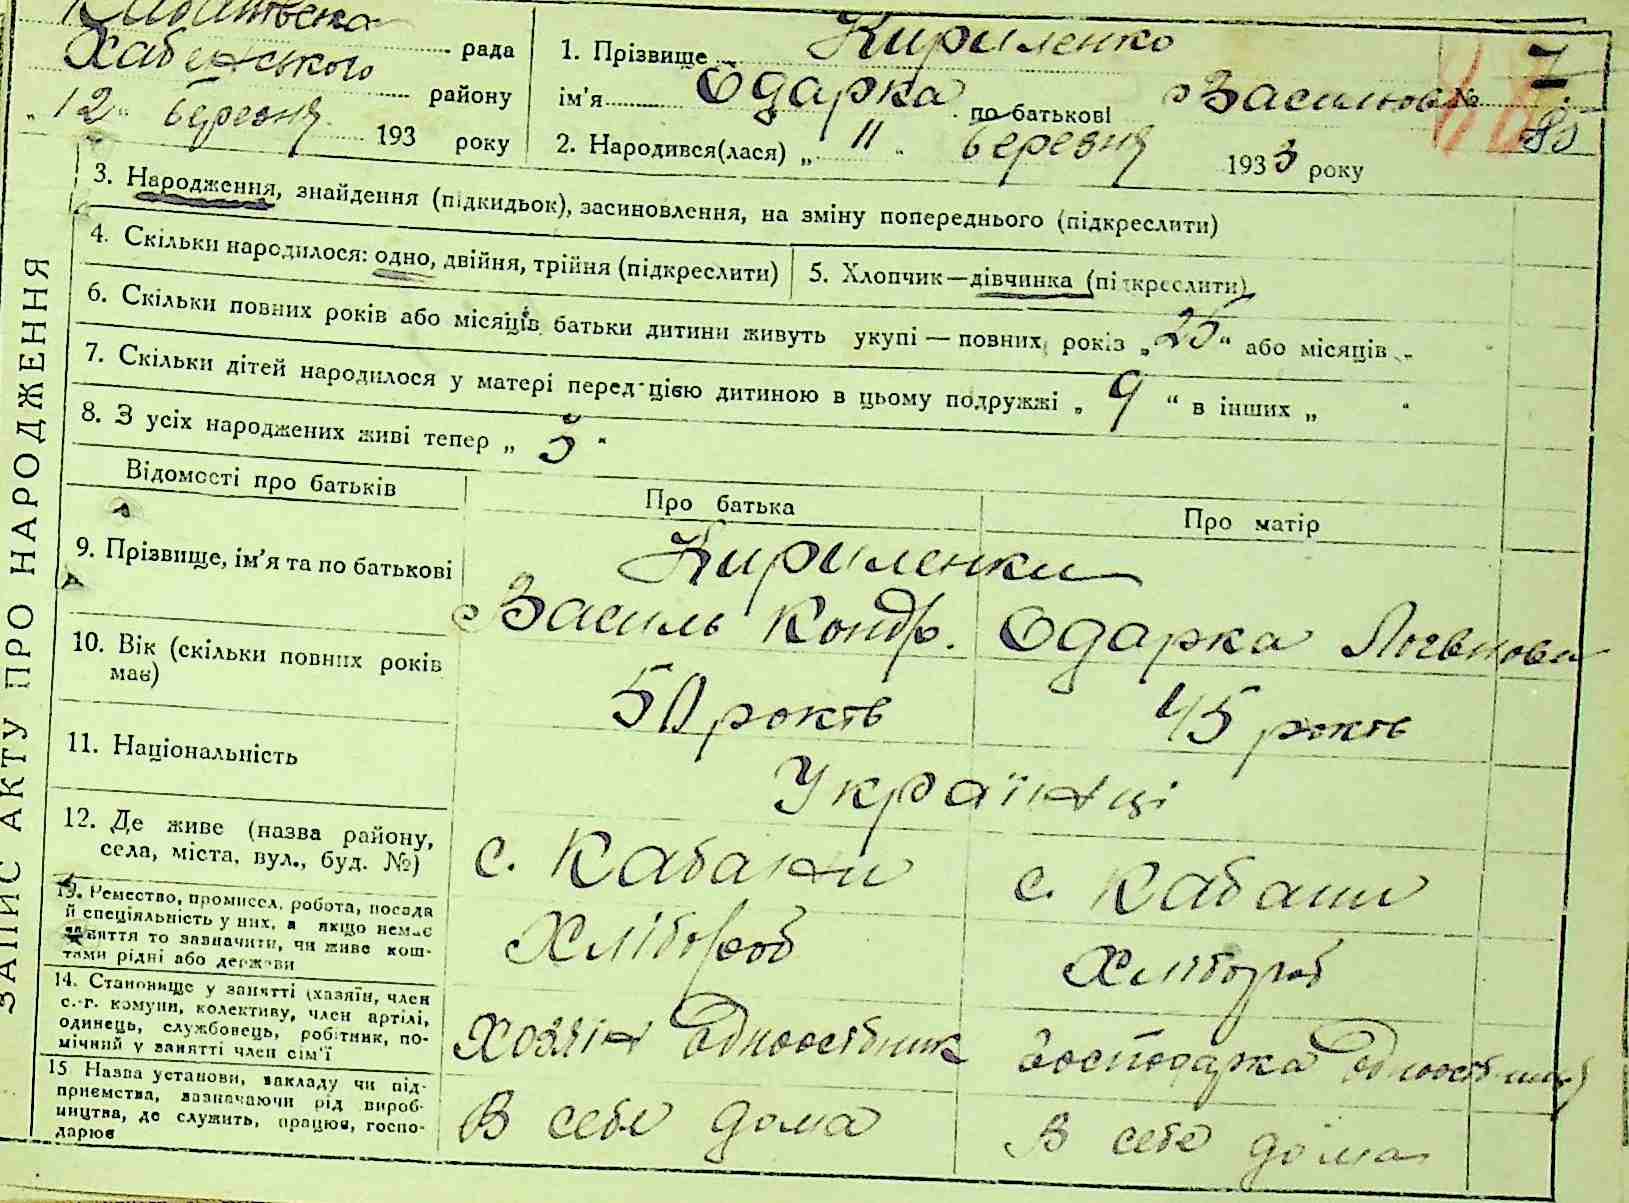 Кабанівська рада
Хабенського району
„12“ березня 193 року
1. Прізвище Кириленко
ім'я Одарка по батькові Василівна
2. Народився(лася) „11“ березня 1933 року
7
85
ЗАПИС АКТУ ПРО НАРОДЖЕННЯ
3. Народження, знайдення (підкидьок), засиновлення, на зміну попереднього (підкреслити)
4. Скільки народилося: одно, двійня, трійня (підкреслити)
5. Хлопчик—дівчинка (підкреслити)
6. Скільки повних років або місяців батьки дитини живуть укупі — повних років „25“ або місяців „
7. Скільки дітей народилося у матері перед цією дитиною в цьому подружжі „9“ в інших „ “
8. З усіх народжених живі тепер „5“
Відомості про батьків
Про батька
Про матір
9. Прізвище, ім'я та по батькові
Кириленки
Василь Кондр.
Одарка Логвинови
10. Вік (скільки повних років має)
50 років
45 років
11. Національність
Українці
12. Де живе (назва району,
села, міста, вул., буд. №)
с. Кабани
с. Кабани
13. Ремество, промисел, робота, посада
й спеціяльність у них, а якщо немає
заняття то зазначити, чи живе кош-
тами рідні або держави
Хлібороб
Хлібороб
14. Становище у занятті (хазяїн, член
с.-г. комуни, колективу, член артілі,
одинець, службовець, робітник, по-
мічний у занятті член сім'ї
Хозяін одноосібник
Господарка
15 Назва установи, закладу чи під-
приємства, зазначаючи рід вироб-
ництва, де служить, працює, госпо-
дарює
В себе дома
В себе дома